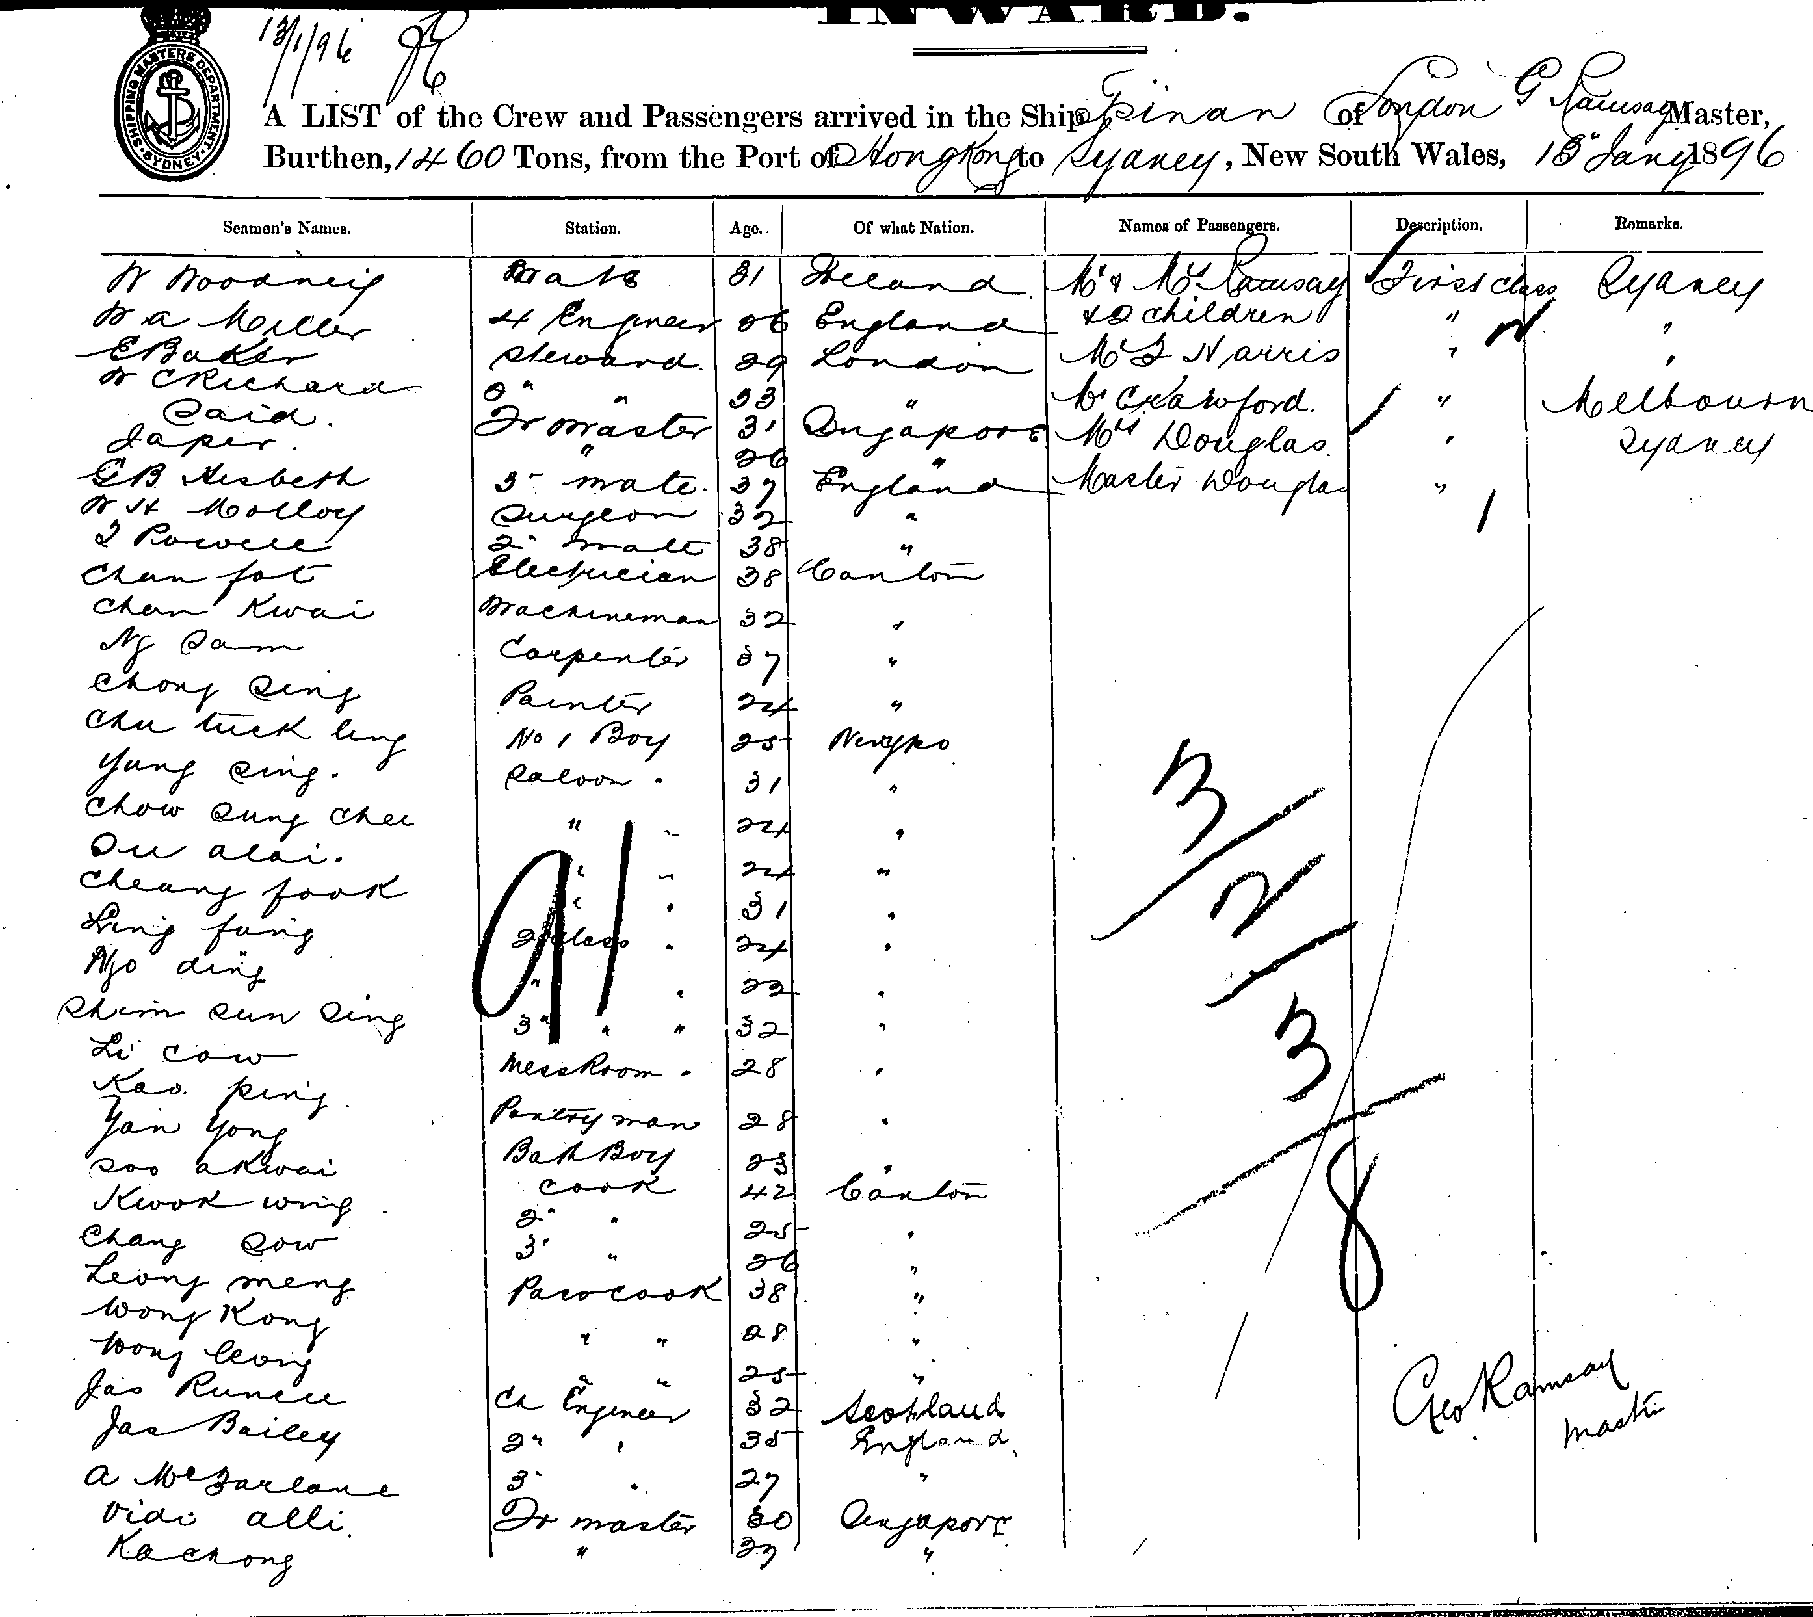 INWARD.
13/1/96
SHIPPING MASTERS DEPARTMENT SYDNEY
A LIST of the Crew and Passengers arrived in the Ship Tsinan of London G Ramsay Master,
Burthen, 1460 Tons, from the Port of Hong Kong to Sydney, New South Wales, 13" Jany 1896
Seamen's Names. Station. Age. Of what Nation. Names of Passengers. Description. Remarks.
W Mate 31 Ireland Mr & Mrs Ramsay First class Sydney
W A Miller 4 Engineer 26 England & 2 children " "
E Baker Steward. 29 London Mr F Harris " "
W C Richard 2" " 33 " Mr Crawford. " Melbourn
Said. Lr Master 31 Singapore Mrs Douglas. " Sydney
Japer. " 26 "
G B Nisbeth 3" mate. 37 England Master Douglas "
W H Molloy Surgeon 32 "
T Powell 2" mate 38 "
Chan fat Electrician 38 Canton
Chan Kwai Machineman 32 "
Ng Sam Carpenter 37 "
Chong Sing Painter 24 "
Chu tuck ling No 1 Boy 25 Ningpo
Yung Sing. Saloon " 31 "
Chow Sung Chee " " 24 "
Su alai. " " 24 "
Cheang fook " " 31 "
Ling fung 2" class " 24 "
Ngo ding " " 22 "
Shim Sun Sing 3" " " 32 "
Li Cow MessRoom " 28 "
Kao ping. Pantry man 28 "
Yan Yong Bath Boy 23 "
Soo akwai Cook 42 Canton
Kwok wing 2" " 25 "
Chang Sow 3" " 26 "
Leong meng Parocook 38 "
Wong Kong " " 28 "
Wong leong " " 25 "
Jas Runcie Ch Engineer 32 Scotland
Jas Bailey 2" " 35 England
A McFarlane 3" " 27 "
Vidi alli. Lr master 30 Singapore
Kachong " 27 "
91
3
2
3
8
Geo Ramsay
Master